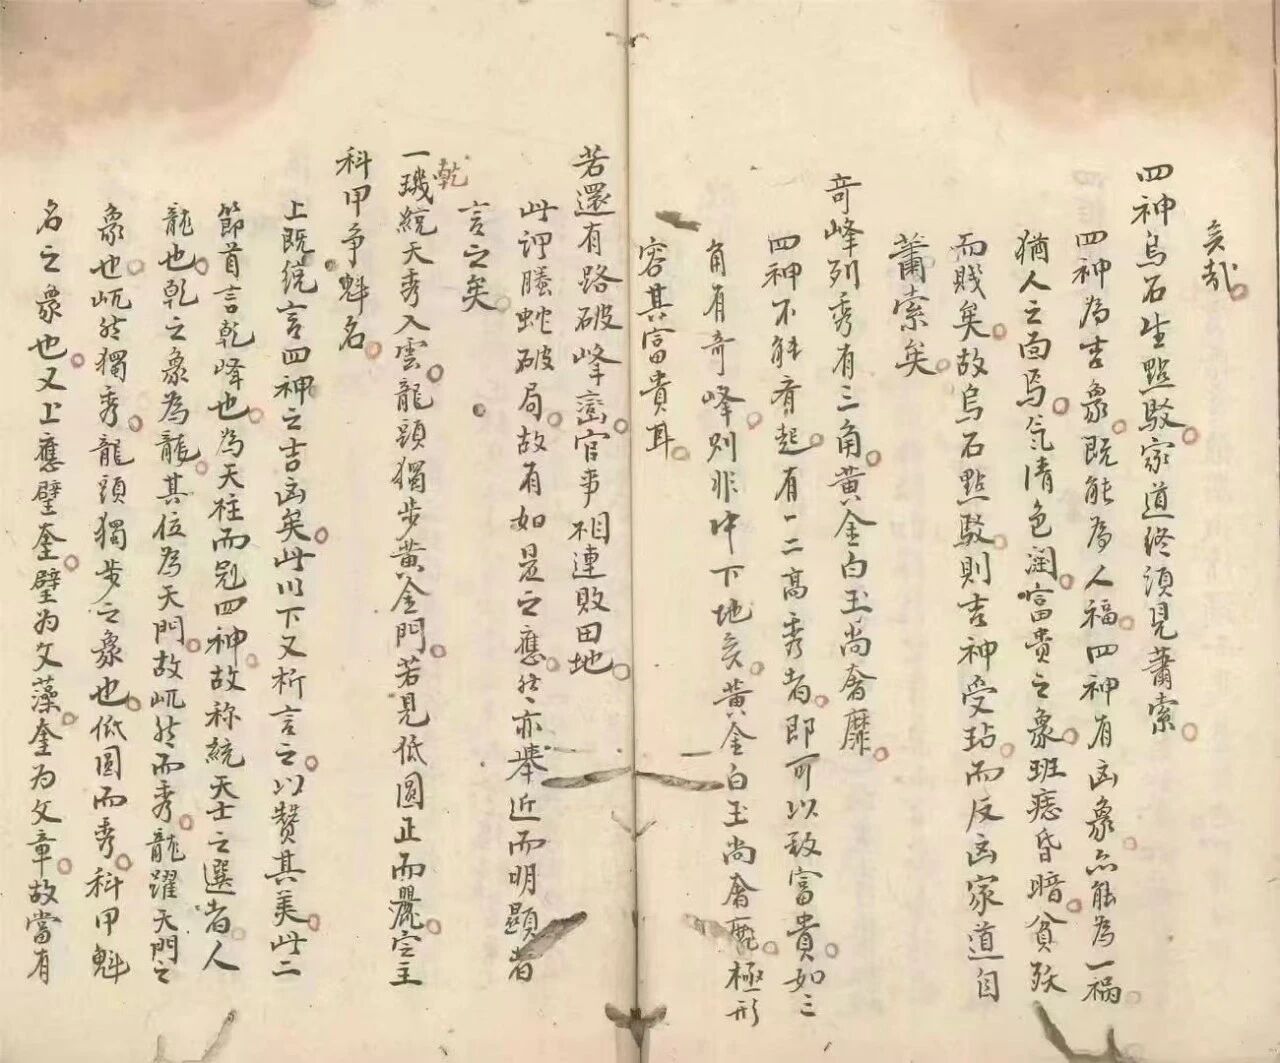 矣哉
四神烏石生點駁家道終須見蕭索
四神為吉象既能為人福四神有凶象亦能為人禍
猶人之面焉氣清色潤富貴之象班痣昏暗貧殀
而賤矣故烏石點駁則吉神受玷而反凶家道自
蕭索矣
奇峰列秀有三角黃金白玉尚奢靡
四神不觧看起有一二高秀者即可以致富貴如三
角有奇峰則非中下地矣黃金白玉尚奢靡極形
容其富貴耳
若還有路破峰巒官事相連敗田地
此謂螣蛇破局故有如是之應然亦舉近而明顯者
言之矣
一璣統天秀入雲龍頭獨步黃金門若見低圓正而麗定主
乾
科甲爭魁名
上既統言四神之吉凶矣此以下又析言之以贊其美此二
節首言乾峰也為天柱而冠四神故称統天士之選者人
龍也乾之象為龍其位為天門故屼然而秀龍躍天門之
象也屼然獨秀龍頭獨步之象也低圓而秀科甲魁
名之象也又上應壁奎壁为文藻奎为文章故當有